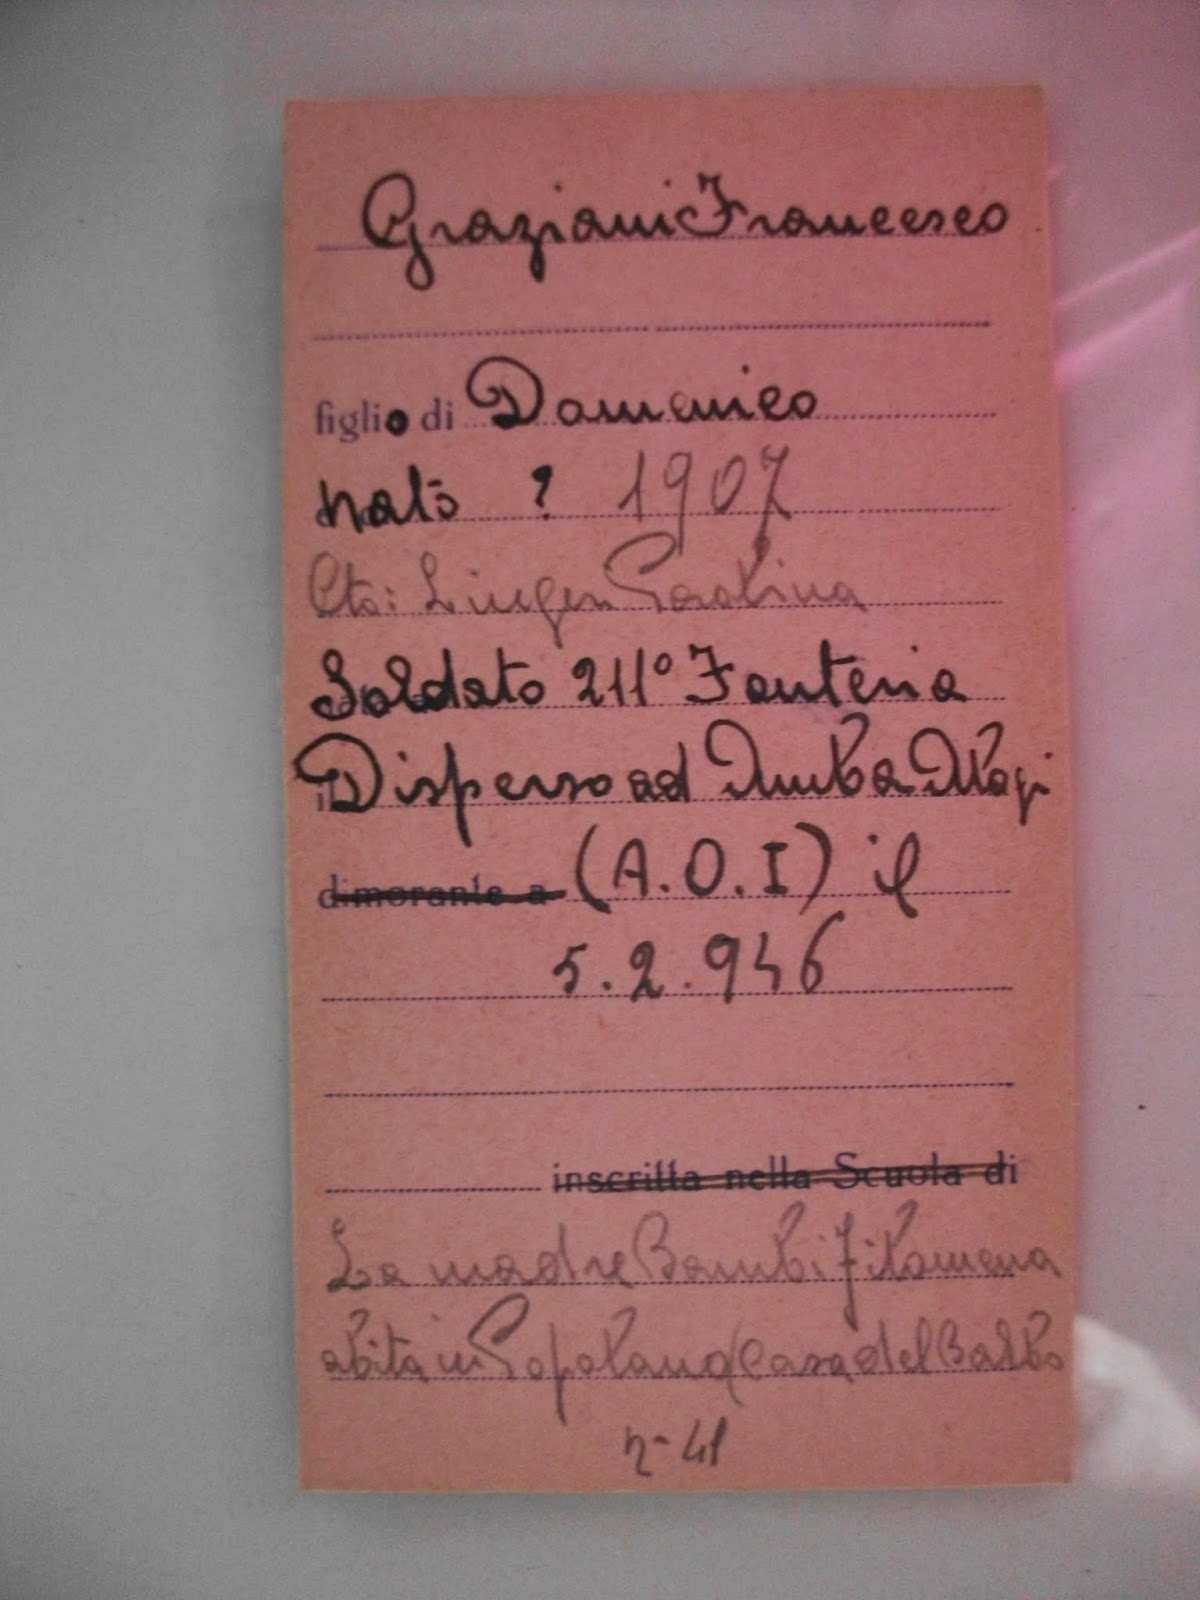 Graziani Francesco
figlio di Domenico
nato ? 1907
Soldato 211° Fanteria
Disperso ad Amba Alagi
dimorante a (A.O.I) il
5.2.946
inscritta nella Scuola di
La madre Bambi Filomena
abita in Popolano Casa del Balbo
n- 41